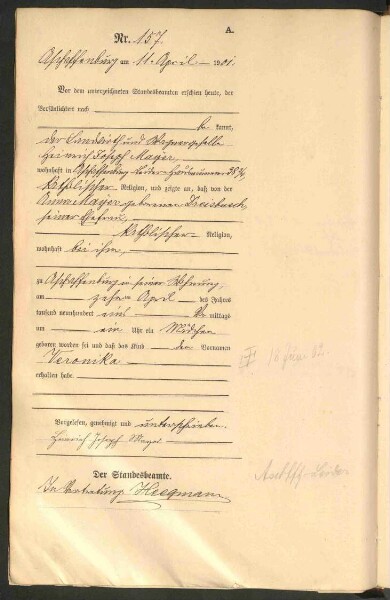 A.
Nr. 157.
Aschaffenburg am 11. April 1901.
Vor dem unterzeichneten Standesbeamten erschien heute, der
Persönlichkeit nach
be kannt,
der Landwirth und Wagnergeselle
Heinrich Joseph Mayer,
wohnhaft in Aschaffenburg-Leider Hausnummer
katholischer Religion, und zeigte an, daß von der
Anna Mayer geborenen Dreisbach
seiner Ehefrau,
katholischer Religion,
wohnhaft bei ihm,
zu Aschaffenburg in seiner Wohnung,
am zehn April des Jahres
tausend neunhundert eins Vormittags
um ein Uhr ein Mädchen
geboren worden sei und daß das Kind den Vornamen
Veronika
erhalten habe.
Vorgelesen, genehmigt und unterschrieben.
Heinrich Joseph Mayer
Der Standesbeamte.
In Vertretung: Heegmann